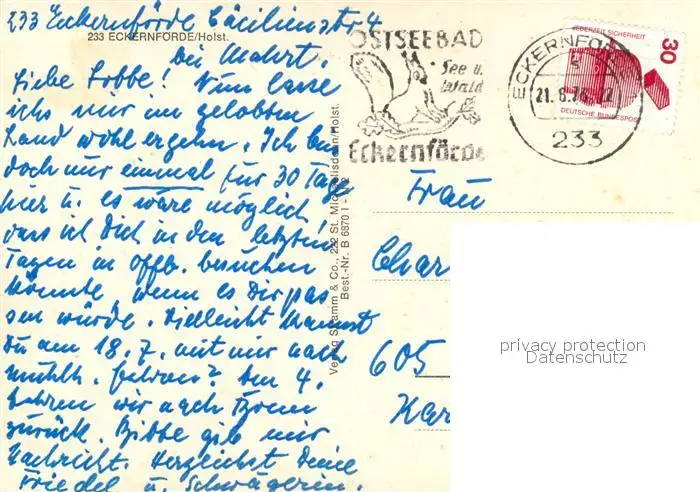 233 Eckernförde Cäcilienstr 4
233 ECKERNFÖRDE/Holst.
bei Mahrt.
Liebe Lobbe! Nun lasse
ichs mir im gelobten
Land wohl ergehn. Ich bin
doch nur einmal für 30 Tage
hier u. es wäre möglich
dass ich Dich in den letzten
Tagen in Offb. besuchen
könnte, wenn es Dir pas
sen würde. Vielleicht kannst
Du am 18.7. mit mir nach
Mühlh. fahren? Am 4.
fahren wir nach Bonn
zurück. Bitte gib mir
Nachricht. Herzlichst Deine
Friedel u. Schwägerin.
Verlag Schramm & Co., 222 St. Michaelisdonn/Holst.
Best.-Nr. B 6870 I -
OSTSEEBAD
See u.
Wald
Eckernförde
ECKERNFÖRDE
21.8.76
233
JEDERZEIT SICHERHEIT
30
DEUTSCHE BUNDESPOST
Frau
Char
605
Kar
privacy protection
Datenschutz